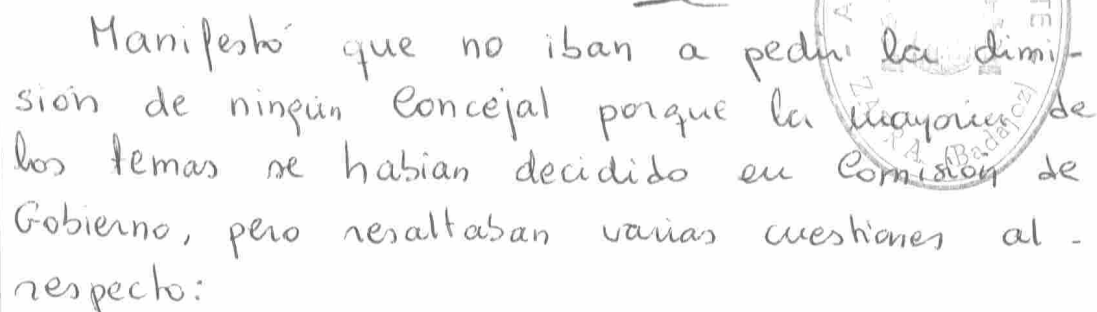 Manifestó que no iban a pedir la dimi-
sión de ningún Concejal porque la mayoría de
los temas se habian decidido en Comisión de
Gobierno, pero resaltaban varias cuestiones al -
respecto:
(Badajoz)